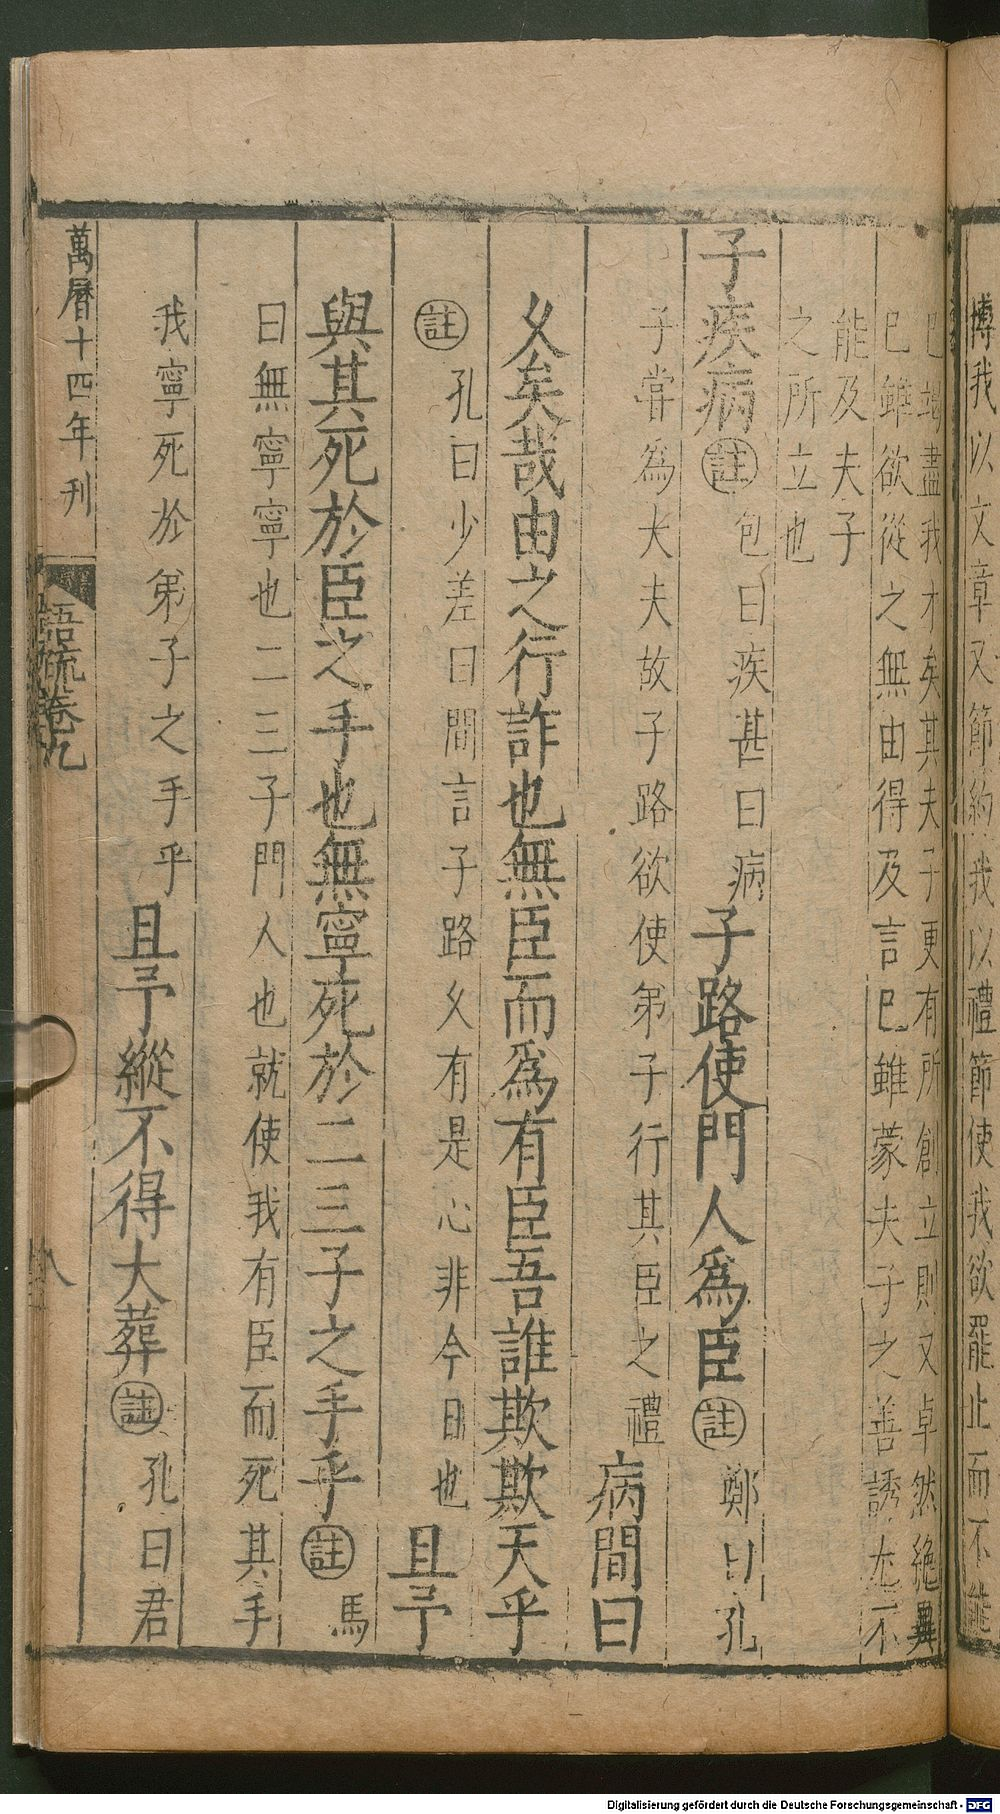 博我以文章又節約我以禮節使我欲罷止而不能
已竭盡我才矣其夫子更有所創立則又卓然絶異
已雖欲從之無由得及言已雖蒙夫子之善誘尢不
能及夫子
之所立也
子疾病註包曰疾甚曰病子路使門人爲臣註鄭曰孔
子嘗爲大夫故子路欲使弟子行其臣之禮病間曰
乆矣哉由之行詐也無臣而爲有臣吾誰欺欺天乎
註孔曰少差曰間言子路乆有是心非今日也且予
與其死於臣之手也無寧死於二三子之手乎註馬
曰無寧寧也二三子門人也就使我有臣而死其手
我寧死於弟子之手乎且予縱不得大葬註孔曰君
萬曆十四年刊
語疏卷九
八
Digitalisierung gefördert durch die Deutsche Forschungsgemeinschaft - DFG